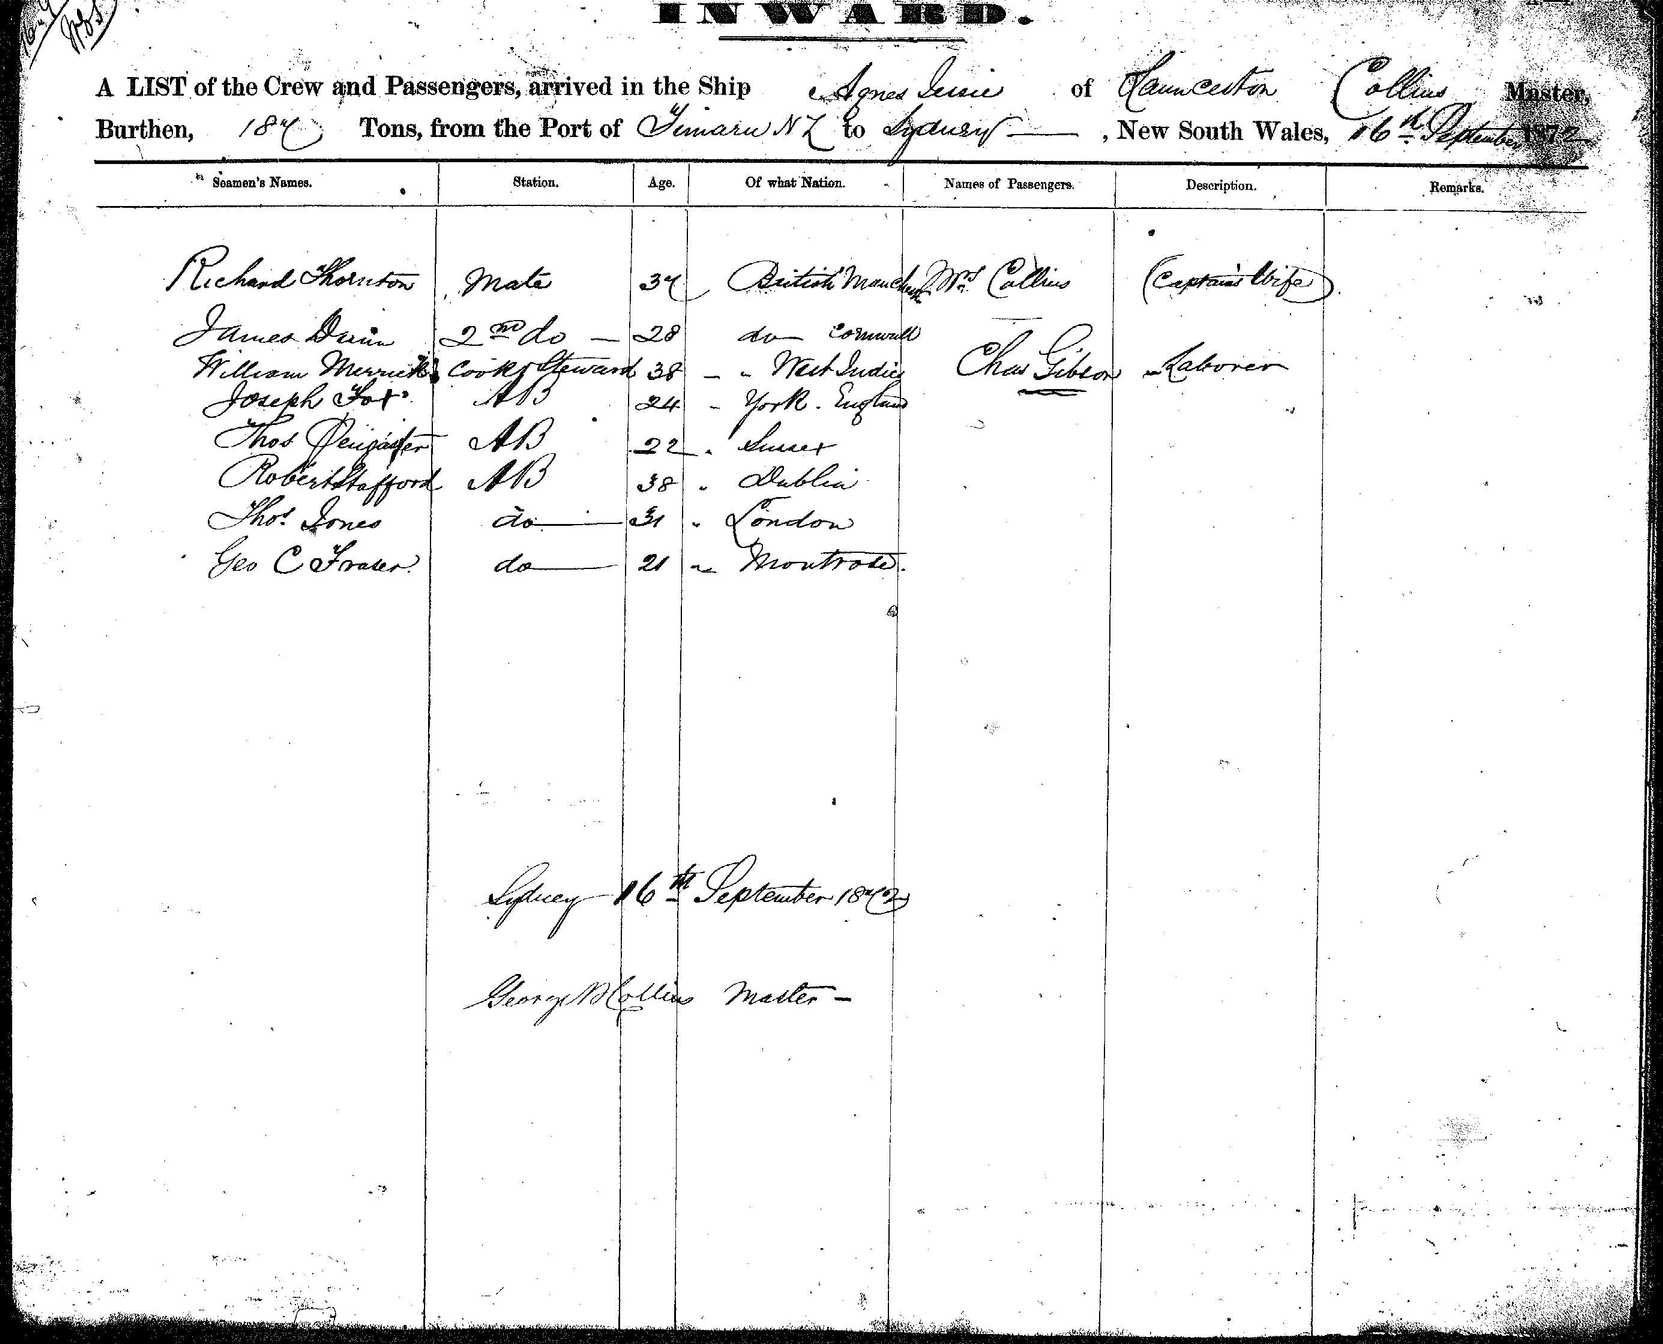 INWARD.
A LIST of the Crew and Passengers, arrived in the Ship Agnes Jessie of Launceston Collins Master,
Burthen, 187 Tons, from the Port of Timaru NZ to Sydney, New South Wales, 16th September 1872
Seamen's Names. Station. Age. Of what Nation. Names of Passengers. Description. Remarks.
Richard Thornton Mate 37 British Mrs Collins (Captain's Wife)
James Dunn 2nd do — 28 do Cornwall
William Merrick Cook & Steward 38 " West Indies Chas Gibson Laborer
Joseph Fox AB 24 " York. England
Thos AB 22 " Sussex
Robert Stafford AB 38 " Dublin
Thos. Jones do 31 " London
Geo C Fraser do 21 " Montrose.
Sydney 16th September 1872
George Collins Master —